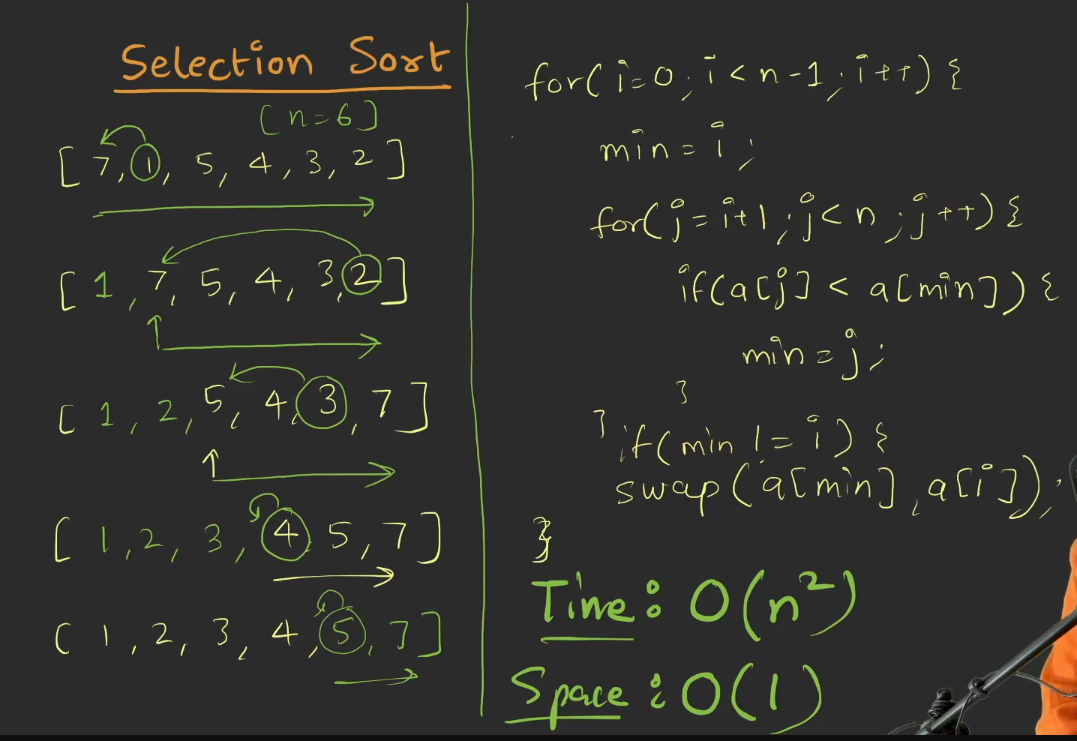 Selection Sort
[n=6]
[7, 1, 5, 4, 3, 2]
[1, 7, 5, 4, 3, 2]
[1, 2, 5, 4, 3, 7]
[1, 2, 3, 4 5, 7]
[1, 2, 3, 4, 5, 7]
for(i=0; i<n-1; i++) {
min = i;
for(j=i+1; j<n; j++) {
if(a[j] < a[min]) {
min = j;
}
}
if(min != i) {
swap(a[min], a[i]);
}
Time: O(n²)
Space: O(1)